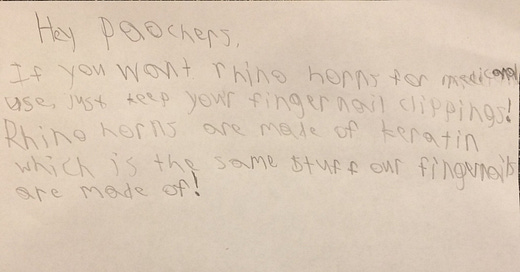 Hey Poachers,
If you want rhino horns for medicanal
use, just keep your fingernail clippings!
Rhino horns are made of keratin
which is the same stuff our fingernails
are made of!